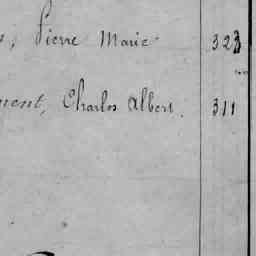 , Pierre Marie 323
ment, Charles Albert. 311